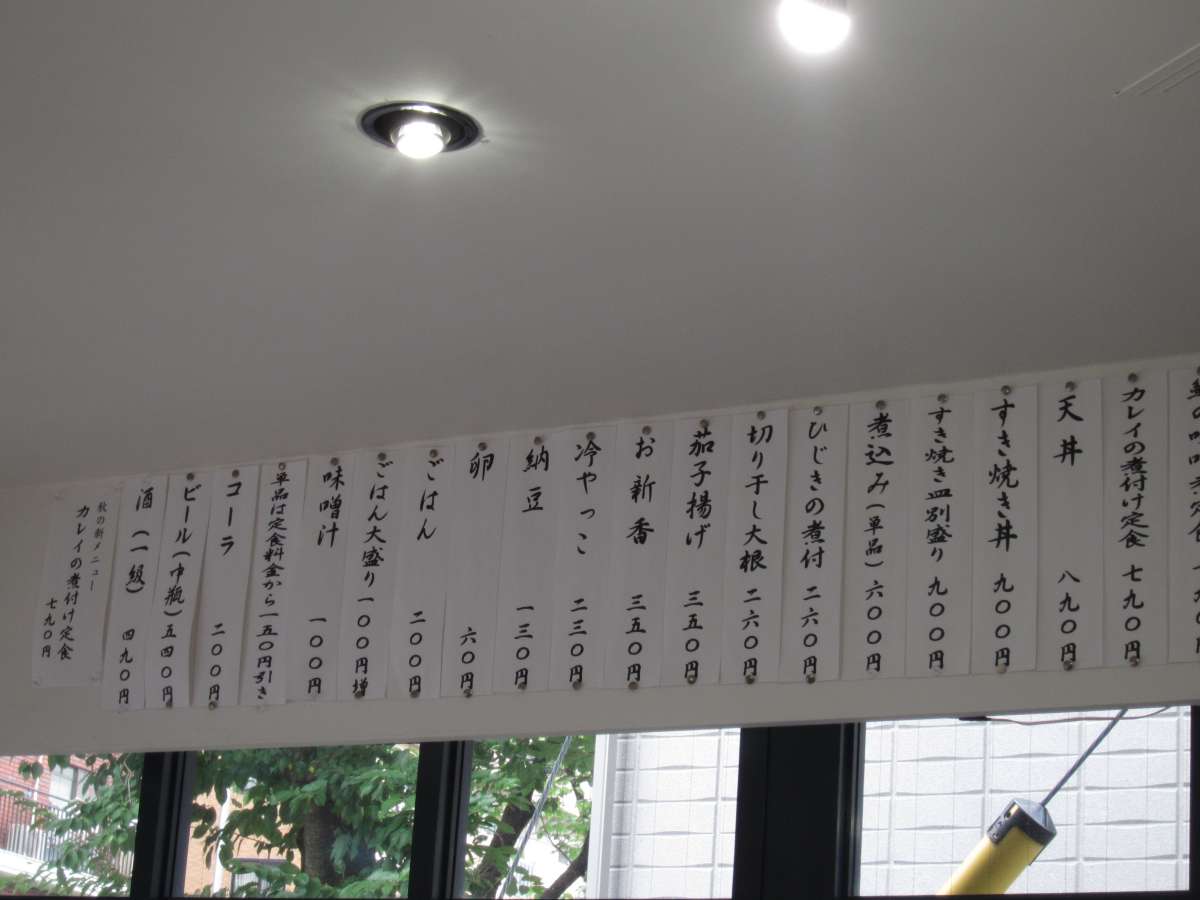 カレイの煮付け定食 七九〇円
天丼 八九〇円
すき焼き丼 九〇〇円
すき焼き皿別盛り 九〇〇円
煮込み(単品) 六〇〇円
ひじきの煮付 二六〇円
切り干し大根 二六〇円
茄子揚げ 三五〇円
お新香 三五〇円
冷やっこ 二三〇円
納豆 一三〇円
卵 六〇円
ごはん 二〇〇円
ごはん大盛り 一〇〇円増
味噌汁 一〇〇円
単品は定食料金から一五〇円引き
コーラ 二〇〇円
ビール(中瓶) 五四〇円
酒(一級) 四九〇円
秋の新メニュー
カレイの煮付け定食
七九〇円